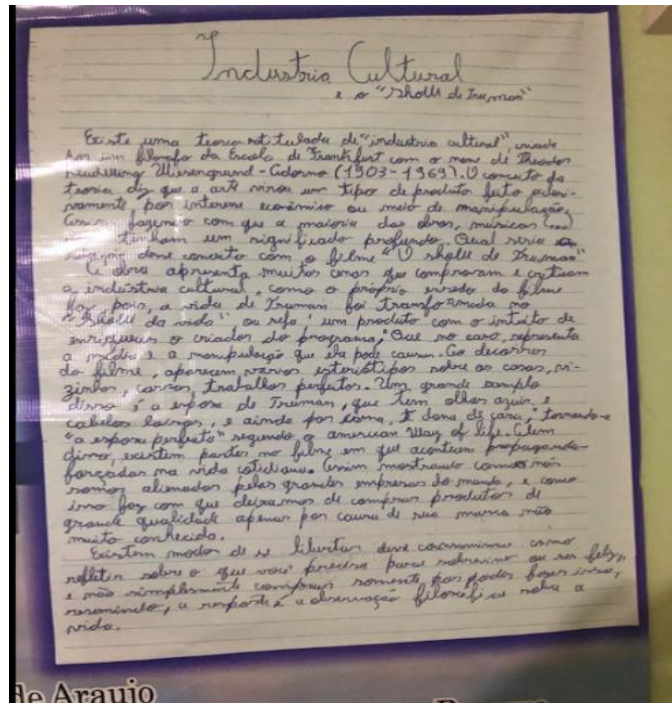 Industria Cultural
e o "sholl de Truman"
Existe uma teoria intitulada de "industria cultural", criada
por um filosofo da Escola de Frankfurt com o nome de Theodor
Wiesengrund-Adorno (1903-1969). O conceito da
teoria diz que a arte virou um tipo de produto feito
por interesse econômico ou meio de manipulação,
fazendo com que a maioria das obras, musicas
tinham um significado profundo. Qual seria
desse conceito com o filme "O sholl de Truman"
A obra apresenta muitas cenas que comprovam e criticam
a indústria cultural, como o próprio enredo do filme
faz, pois, a vida de Truman foi transformada no
"sholl da vida" ou seja um produto com o intuito de
o criador do programa, Que no caso, representa
a mídia e a manipulação que ela pode causar. Ao decorrer
do filme, aparecem varios sobre as casas, vi-
zinhos, carros, trabalhos perfeitos. Um grande
disso é a esposa de Truman, que tem olhos azuis e
cabelos loiros, e ainda por cima, é dona de casa, tornando-a
"a esposa perfeita" segundo o american Way of life. Alem
disso, existem partes no filme em que acontecem propagandas
forçadas na vida cotidiana. Assim mostrando como nós
somos alienados pelas grandes empresas do mundo, e como
isso faz com que deixamos de comprar produtos de
grande qualidade apenas por causa de sua marca não
muito conhecida.
Existem modos de se libertar desse como
refletir sobre o que você precisa para sobreviver ou ser feliz,
e não simplesmente comprar somente por poder fazer isso,
resumindo, a resposta é a observação filosofica sobre a
vida.
de Araujo